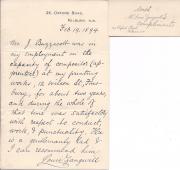 26, Oxford Road,
Kilburn, N.W.
Feb 19, 1894.
Mr. J. Buzzacott was in
my employment in the
capacity of compositor (ap-
prentice) at my printing
works, 12 Wilson St, Fins-
bury, for about two years,
and during the whole of
that time was satisfactory
with respect to conduct,
work, & punctuality. He
is a gentlemanly lad &
I can recommend him.
With
Compliments